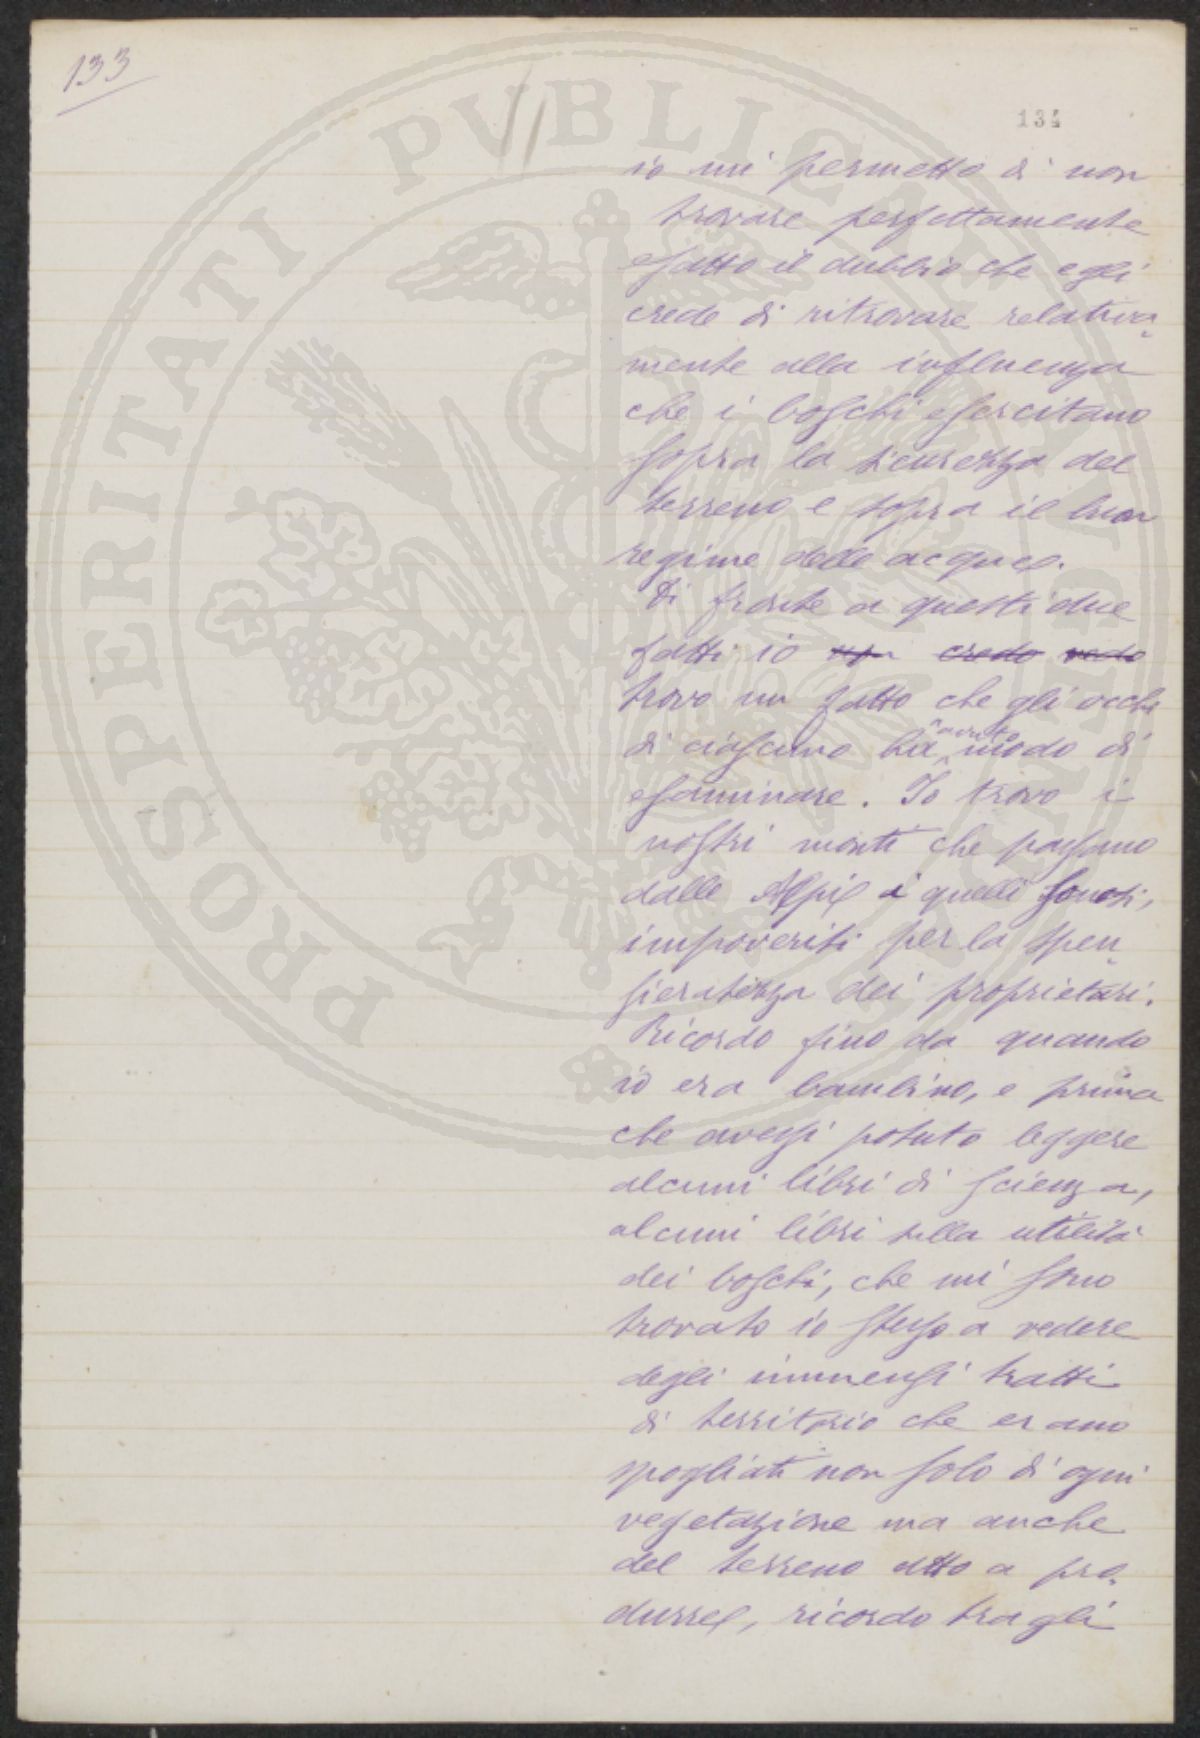 133
134
io mi permetto di non
trovare perfettamente
esatto il dubbio che egli
crede di ritrovare relativa-
mente alla influenza
che i boschi esercitano
sopra la sicurezza del
terreno e sopra il buon
regime delle acque.
Di fronte a questi due
fatti io non credo vedo
trovo un fatto che gli occhi
di ciascuno ha avuto modo di
esaminare. Io trovo i
nostri monti che passano
dalle Alpi a quelli
impoveriti per la spen-
sieratezza dei proprietari.
Ricordo fino da quando
io era bambino, e prima
che avessi potuto leggere
alcuni libri di scienza,
alcuni libri sulla utilità
dei boschi, che mi sono
trovato io stesso a vedere
degli immensi tratti
di territorio che erano
spogliati non solo di ogni
vegetazione ma anche
del terreno atto a pro-
durre, ricordo tra gli
PROSPERITATI PVBLICAE